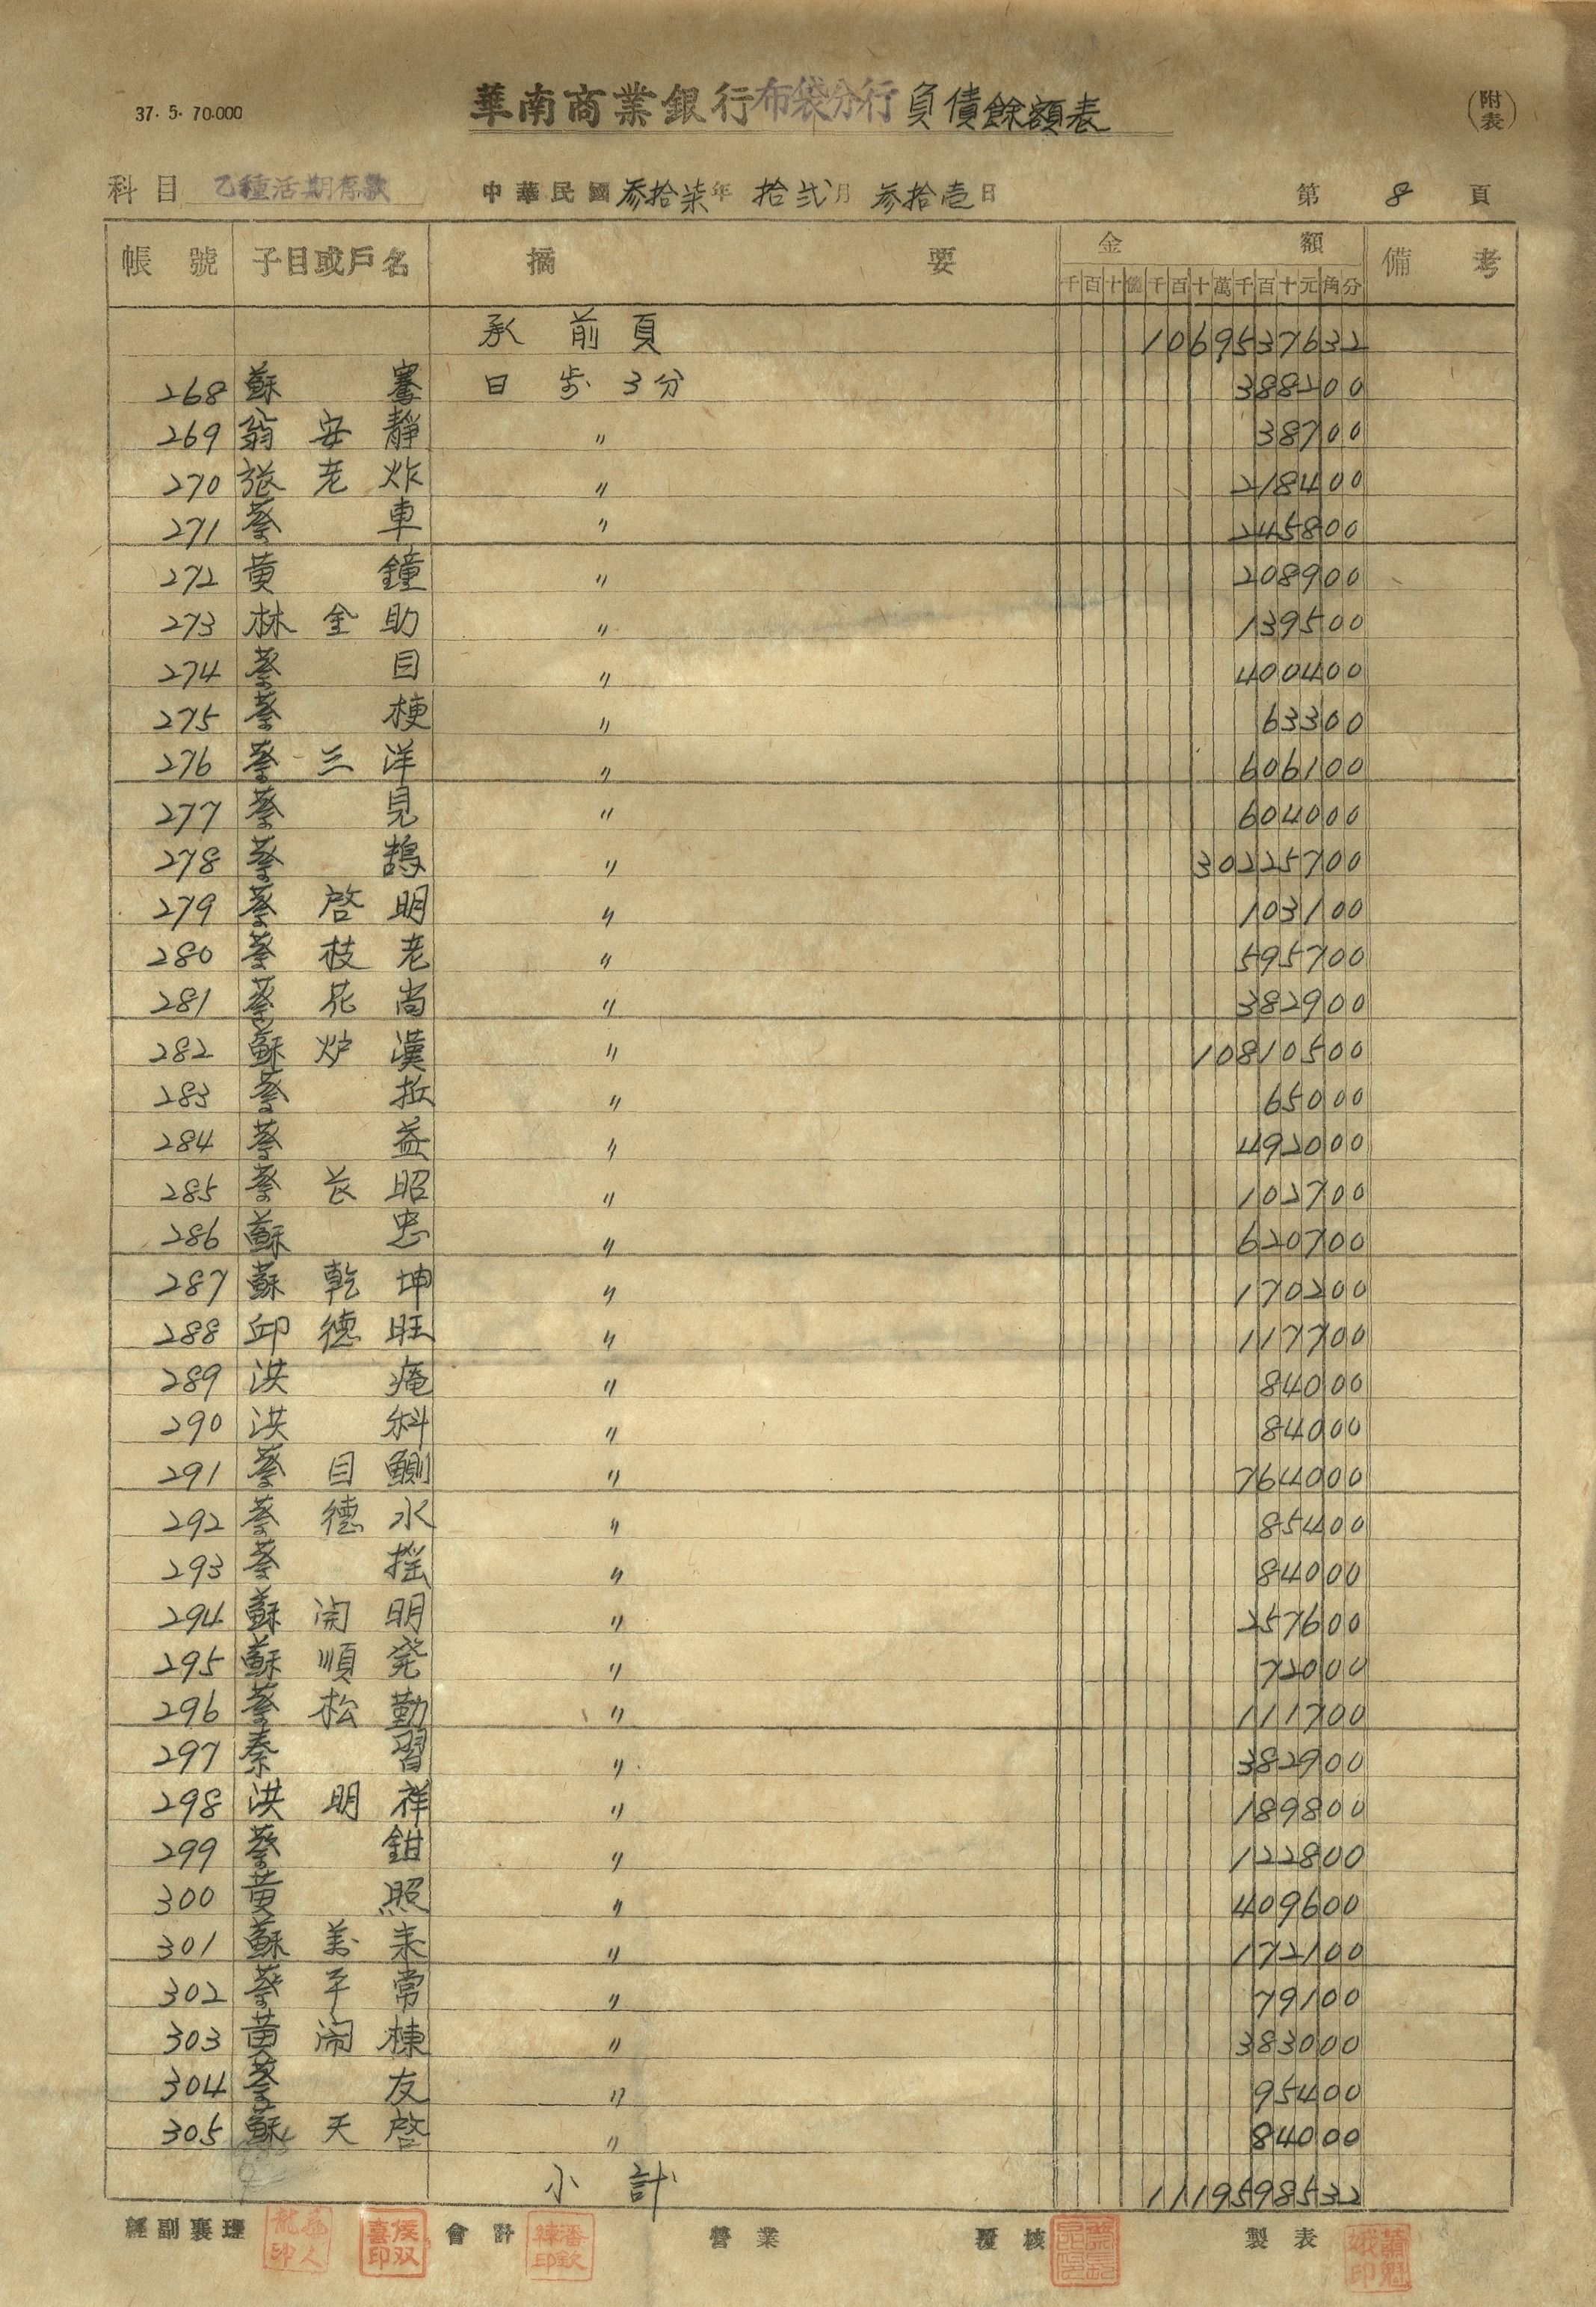 37. 5. 70.000
華南商業銀行布袋分行負債餘額表
(附表)
科目 乙種活期存款 中華民國參拾柒年拾弍月參拾壱日 第8頁
帳號 子目或戶名 摘要 金額 備考
千百十億千百十萬千百十元角分
承前頁 1069537632
268 蘇 日步3分 388200
269 翁安靜 〃 38700
270 張老炸 〃 218400
271 蔡車 〃 245800
272 黃鐘 〃 208900
273 林金助 〃 139500
274 蔡目 〃 400400
275 蔡梗 〃 63300
276 蔡三洋 〃 606100
277 蔡見 〃 604000
278 蔡鵠 〃 30225700
279 蔡啓明 〃 103100
280 蔡枝老 〃 595700
281 蔡花尚 〃 382900
282 蘇炉漢 〃 10810500
283 蔡 〃 65000
284 蔡益 〃 492000
285 蔡長昭 〃 102700
286 蘇忠 〃 620700
287 蘇乾坤 〃 170200
288 邱德旺 〃 117700
289 洪 〃 84000
290 洪科 〃 84000
291 蔡目鰂 〃 764000
292 蔡德水 〃 85400
293 蔡搖 〃 84000
294 蘇開明 〃 257600
295 蘇順発 〃 72000
296 蔡松勤 〃 111700
297 秦習 〃 382900
298 洪明祥 〃 189800
299 蔡鉗 〃 122800
300 黃照 〃 409600
301 蘇美来 〃 172100
302 蔡子常 〃 79100
303 黃閙棟 〃 383000
304 蔡友 〃 95400
305 蘇天啓 〃 84000
小計 1119598532
經副襄理 會計 營業 覆核 製表
侯双喜印
潘欽
蕭魁娥印